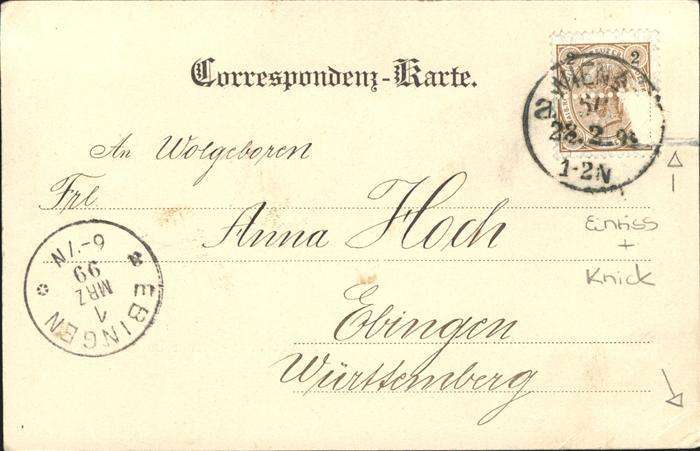 Correspondenz-Karte.
2 2
WIEN
a
28.2.99
1-2N
An Wolgeboren
Frl
Anna Hoch
Einriss
+
Knick
Ebingen
Württemberg
EBINGEN
1
MRZ
99
6-7N